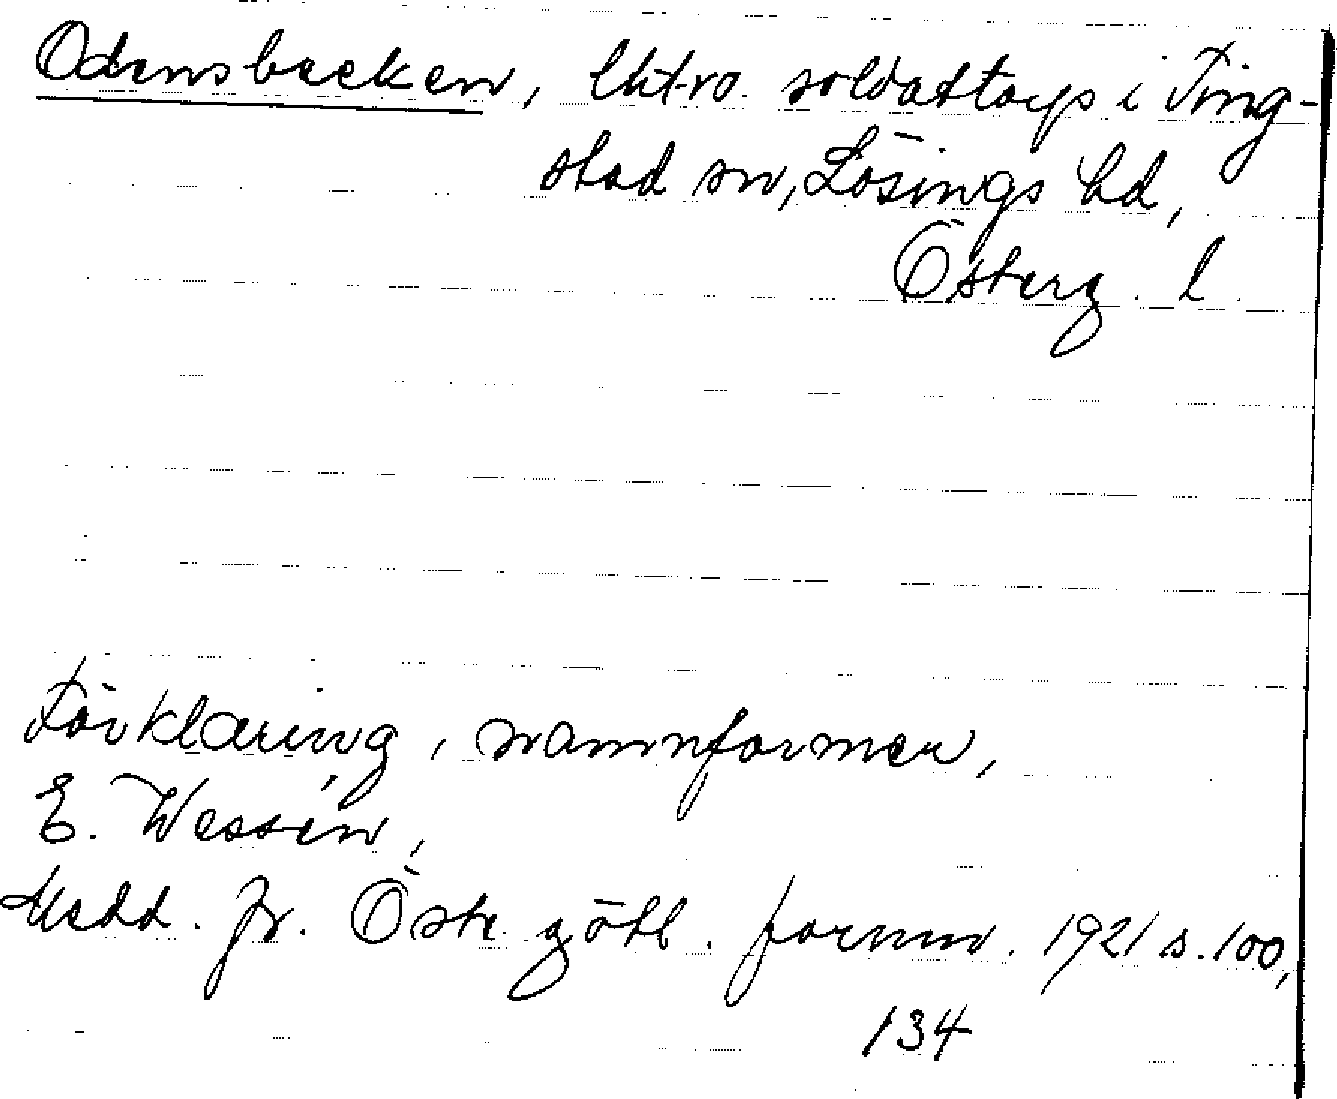 Odensbacken, lht.ro. soldattorp i Ting-
stad sn, Lösings hd,
Österg. l.
Förklaring, namnformer,
E. Wessén,
Medd. fr. Östergötl. fornm. 1921 s. 100,
134